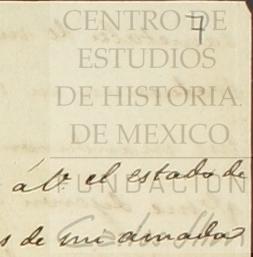 7
CENTRO DE
ESTUDIOS
DE HISTORIA
DE MEXICO
á V. el estado de
FUNDACIÓN
s de mi amada